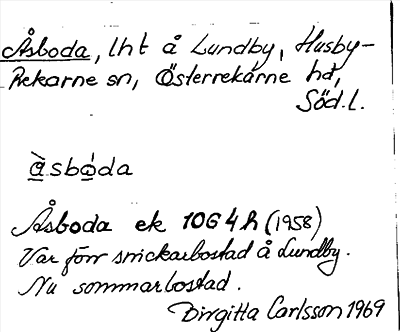 Åsboda, lht å Lundby, Husby-
Rekarne sn, Österrekarne hd,
Söd.l.
å̀sbóda
Åsboda ek 10G4h (1958)
Var förr snickarbostad å Lundby.
Nu sommarbostad.
Birgitta Carlsson 1969